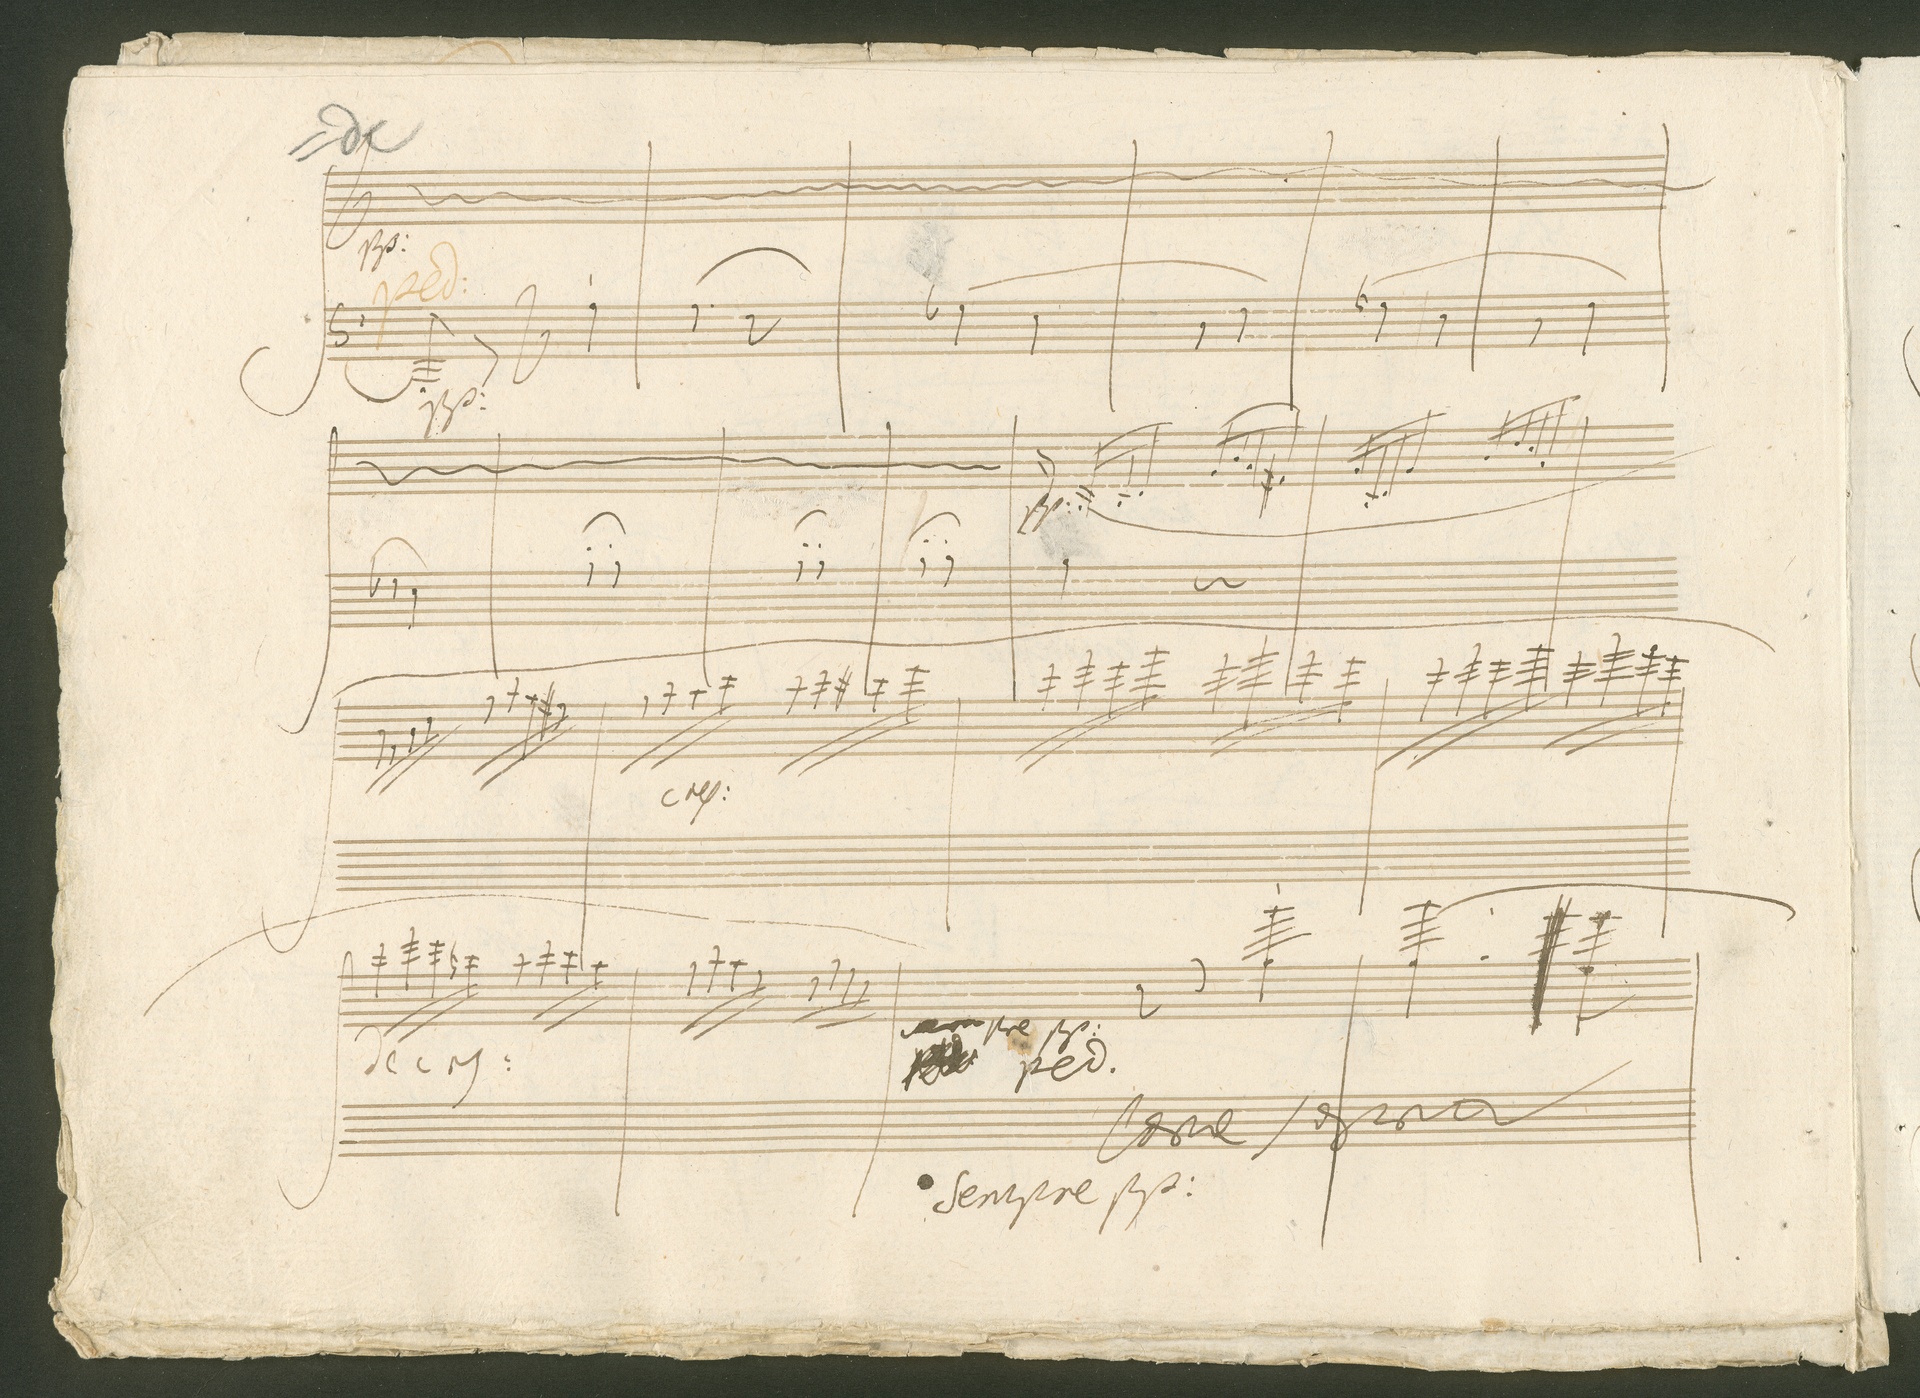 =de
pp:
ped:
pp:
pp:
cresc:
decresc:
pre pp:
ped.
Come sopra
Sempre pp: